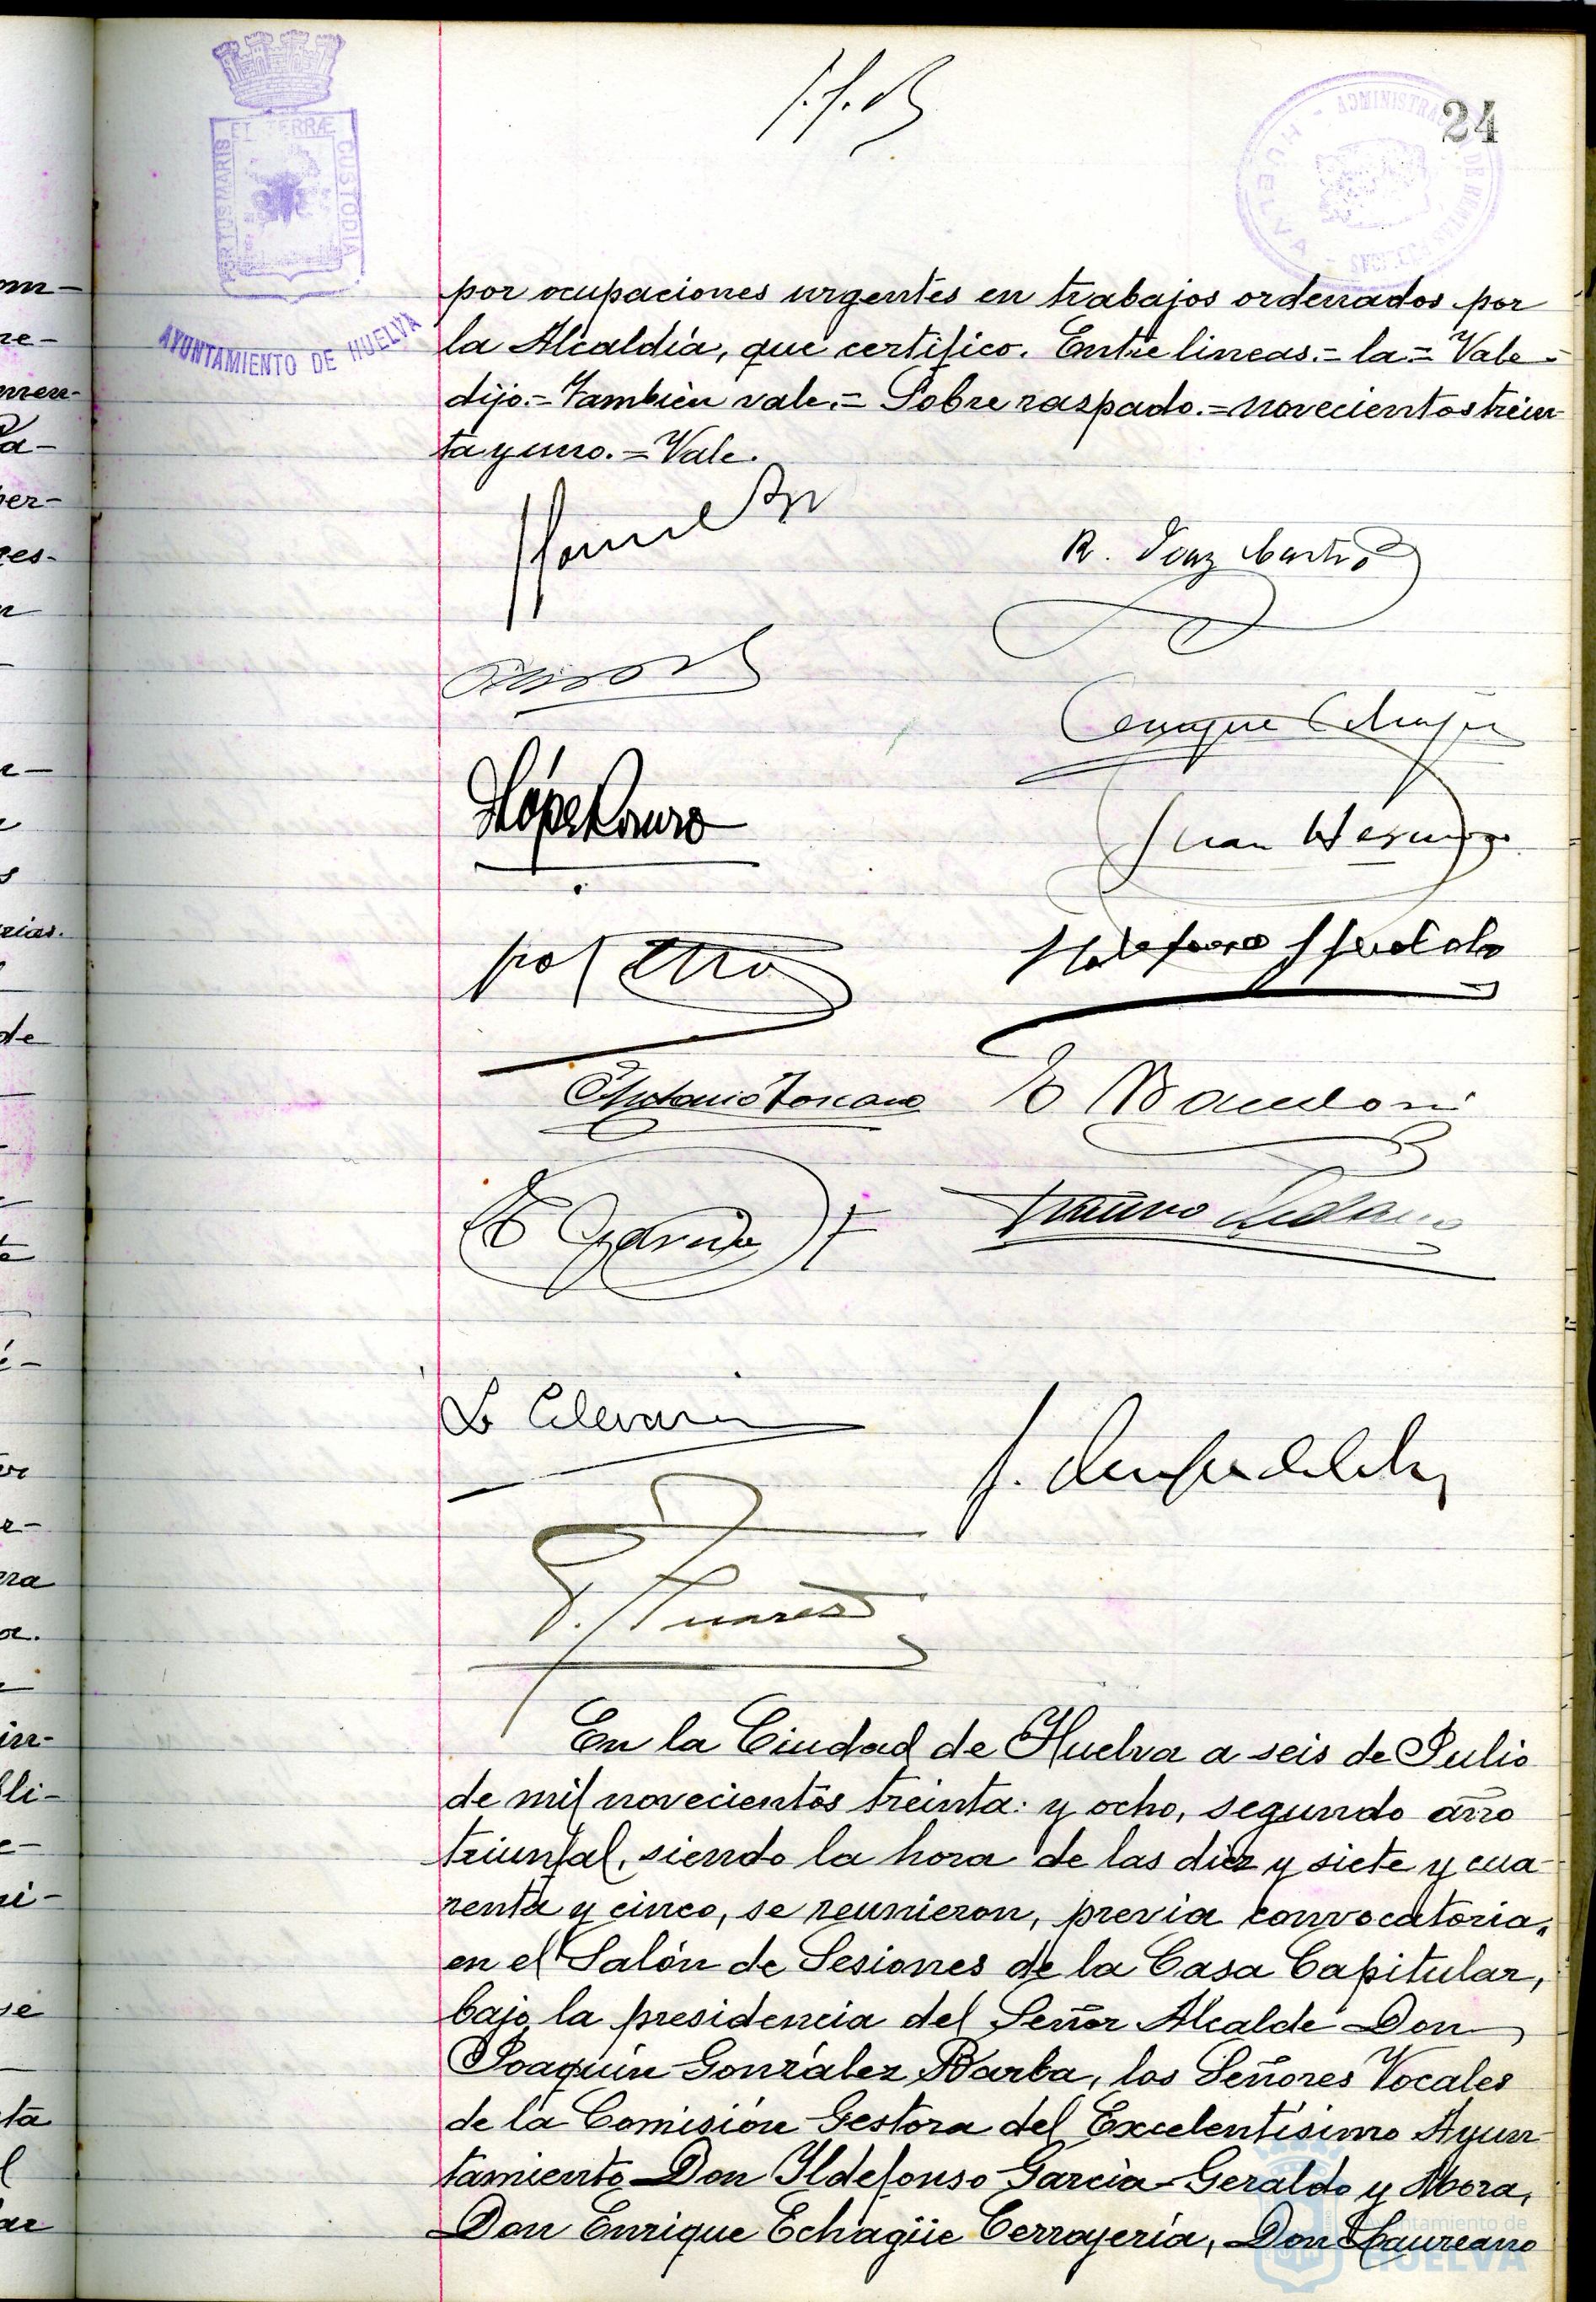 24
PORTUS MARIS ET TERRÆ CUSTODIA
AYUNTAMIENTO DE HUELVA
ADMINISTRA
HUELVA
por ocupaciones urgentes en trabajos ordenados por
la Alcaldía, que certifico. Entre lineas.= la.= Vale=
dijo.= También vale.= Sobre raspado.= novecientos trein-
ta y uno. = Vale.
R. Diaz Castro
Enrique Echagüe
Antonio Toscano
E García
En la Ciudad de Huelva a seis de Julio
de mil novecientos treinta: y ocho, segundo año
triunfal, siendo la hora de las diez y siete y cua-
renta y cinco, se reunieron, previa convocatoria,
en el Salón de Sesiones de la Casa Capitular,
bajo la presidencia del Señor Alcalde Don
Joaquín González Barba, los Señores Vocales
de la Comisión Gestora del Excelentísimo Ayun-
tamiento Don Ildefonso García-Geraldo y Mora,
Don Enrique Echagüe Cerrayería, Don Laureano
Ayuntamiento de
HUELVA